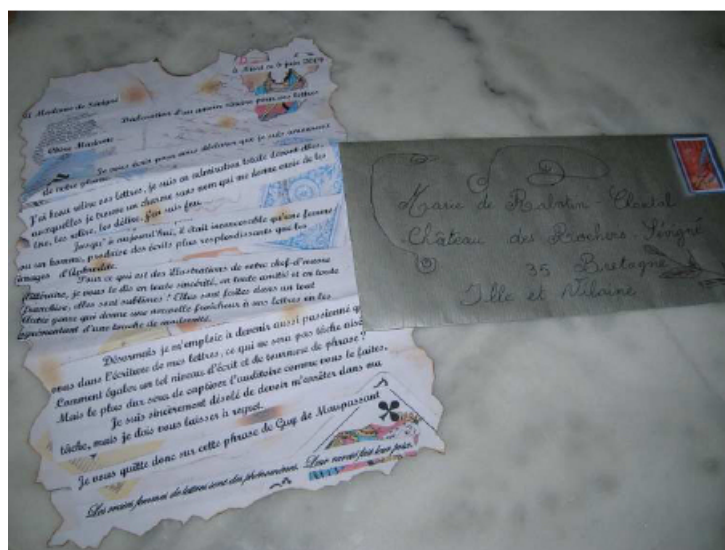 A Madame de Sévigné
Déclaration d'un amour sincère pour vos lettres
Chère Madame
Je vous écris pour vous déclarer que je suis amoureux
de votre plume.
J'ai beau relire vos lettres, je suis en admiration totale devant elles,
auxquelles je trouve un charme sans nom qui me donne envie de les
lire, les relire, les délire, j'en suis fou.
Jusqu'à aujourd'hui, il était inconcevable qu'une femme
ou un homme, produise des écrits plus resplendissants que les
images d'Aphrodite.
Pour ce qui est des illustrations de votre chef-d'œuvre
littéraire, je vous le dis en toute sincérité, en toute amitié et en toute
franchise, elles sont sublimes ! Elles sont faites dans un tout
autre genre qui donne une nouvelle fraîcheur à vos lettres en les
agrémentant d'une touche de modernité.
Désormais je m'emploie à devenir aussi passionné q
vous dans l'écriture de mes lettres, ce qui ne sera pas tâche aisé
Comment égaler un tel niveau d'écrit et de tournure de phrase ?
Mais le plus dur sera de captiver l'auditoire comme vous le faites.
Je suis sincèrement désolé de devoir m'arrêter dans ma
tâche, mais je dois vous laisser à regret.
Je vous quitte donc sur cette phrase de Guy de Maupassant
Les vraies femmes de lettres sont des phénomènes. Leur rareté fait leur prix.
Marie de Rabutin-Chantal
Château des Rochers-Sévigné
35 Bretagne
Ille et Vilaine